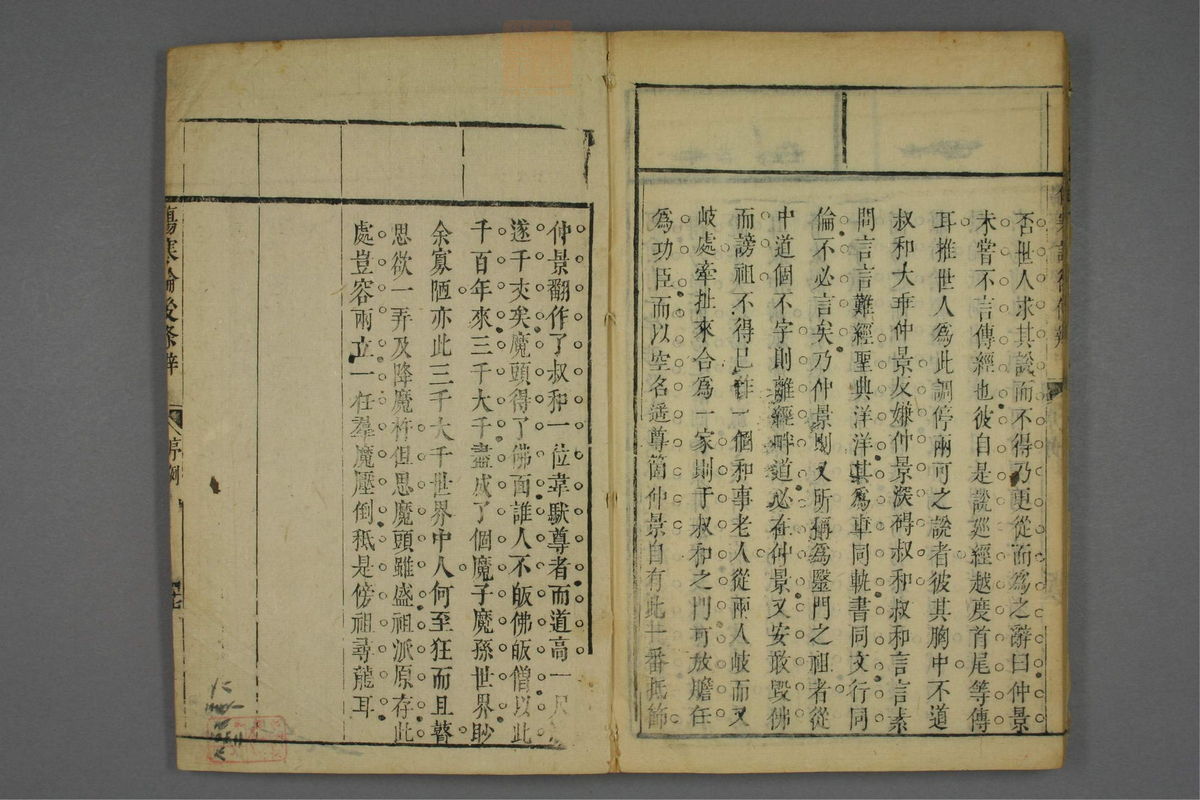 否世人求其說而不得乃更從而為之辭曰仲景
未嘗不言傳經也彼自是說廵經越度首尾等傳
耳推世人為此調停兩可之說者彼其胸中不道
叔和大乖仲景反嫌仲景深碍叔和叔和言言素
問言言難經聖典洋洋其為車同軌書同文行同
倫不必言矣乃仲景則又所稱為醫門之祖者從
中道個不字則離經畔道必在仲景又安敢毀佛
而謗祖不得已作一個和事老人從兩人岐而又
岐處牽扯來合為一家則于叔和之門可放膽任
為功臣而以空名遥尊箇仲景自有此一番抵飾
仲景翻作了叔和一位韋馱尊者而道高一尺
遂千丈矣魔頭得了佛面誰人不皈佛皈僧以此
千百年來三千大千盡成了個魔子魔孫世界眇
余寡陋亦此三千大千世界中人何至狂而且瞽
思欲一弄及降魔杵但思魔頭雖盛祖派原存此
處豈容兩立一任羣魔壓倒秪是傍祖尋龍耳
傷寒論後条辨
序例